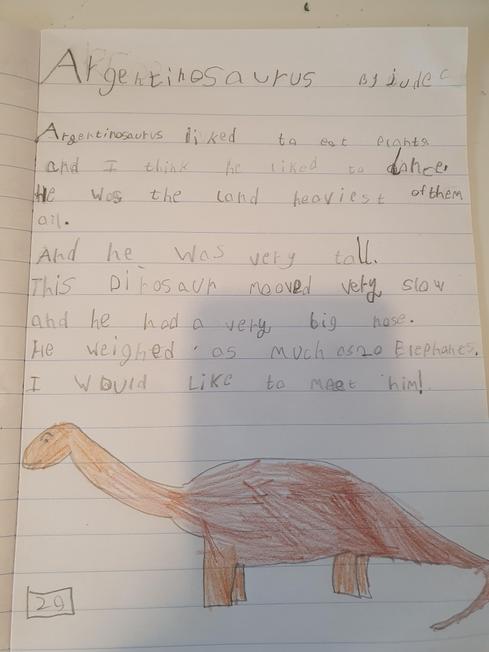 Argentinosaurus By Jude C
Argentinosaurus liked to eat plants
and I think he liked to dance.
He was the land heaviest of them
all.
And he was very tall.
This Dinosaur mooved very slow
and he had a very big nose.
He weighed as much as 20 Elephants.
I would like to meet him!
20